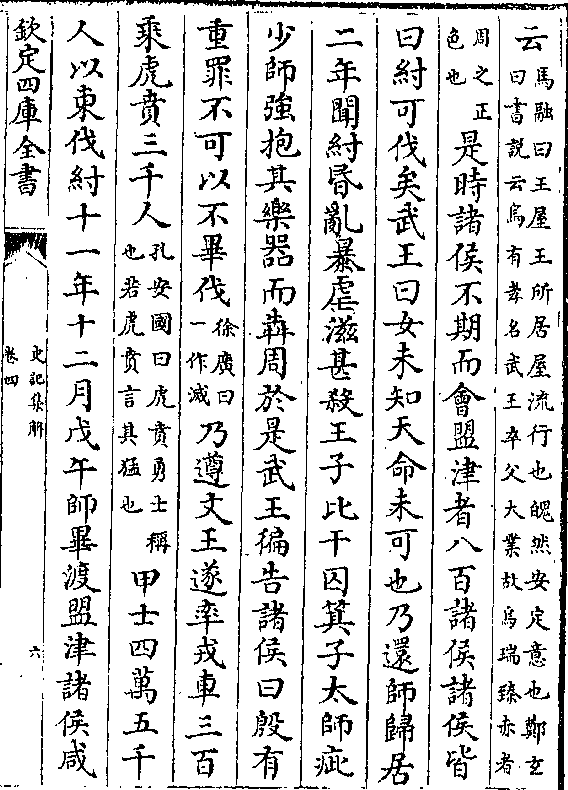 云馬融曰王屋王所居屋流行也魄然安定意也鄭玄曰書說云烏有孝名武王卒父大業故烏瑞臻赤者
周之正色也是時諸侯不期而會盟津者八百諸侯諸侯皆
曰紂可伐矣武王曰女未知天命未可也乃還師歸居
二年聞紂昏亂暴虐滋甚殺王子比干囚箕子太師疵
少師強抱其樂器而犇周於是武王徧告諸侯曰殷有
重罪不可以不畢伐徐廣曰一作滅乃遵文王遂率戎車三百
乘虎賁三千人孔安國曰虎賁勇士稱也若虎賁言其猛也甲士四萬五千
人以東伐紂十一年十二月戊午師畢渡盟津諸侯咸
欽定四庫全書
史記集解
卷四
六